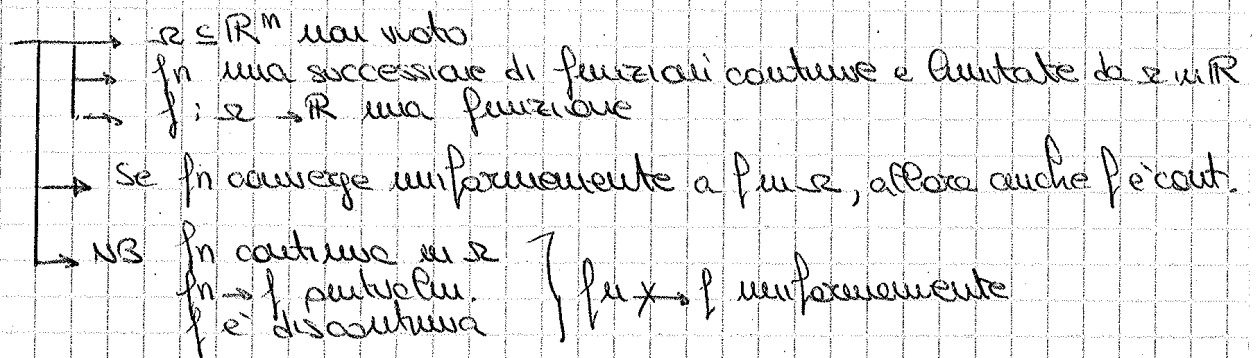 → Ω ⊆ ℝⁿ non vuoto
→ fn una successione di funzioni continue e limitate da Ω in ℝ
→ f : Ω → ℝ una funzione
→ Se fn converge uniformemente a f in Ω, allora anche f è cont.
→ NB fn continua in Ω
fn → f puntualm. } fn ↛ f uniformemente
f è discontinua